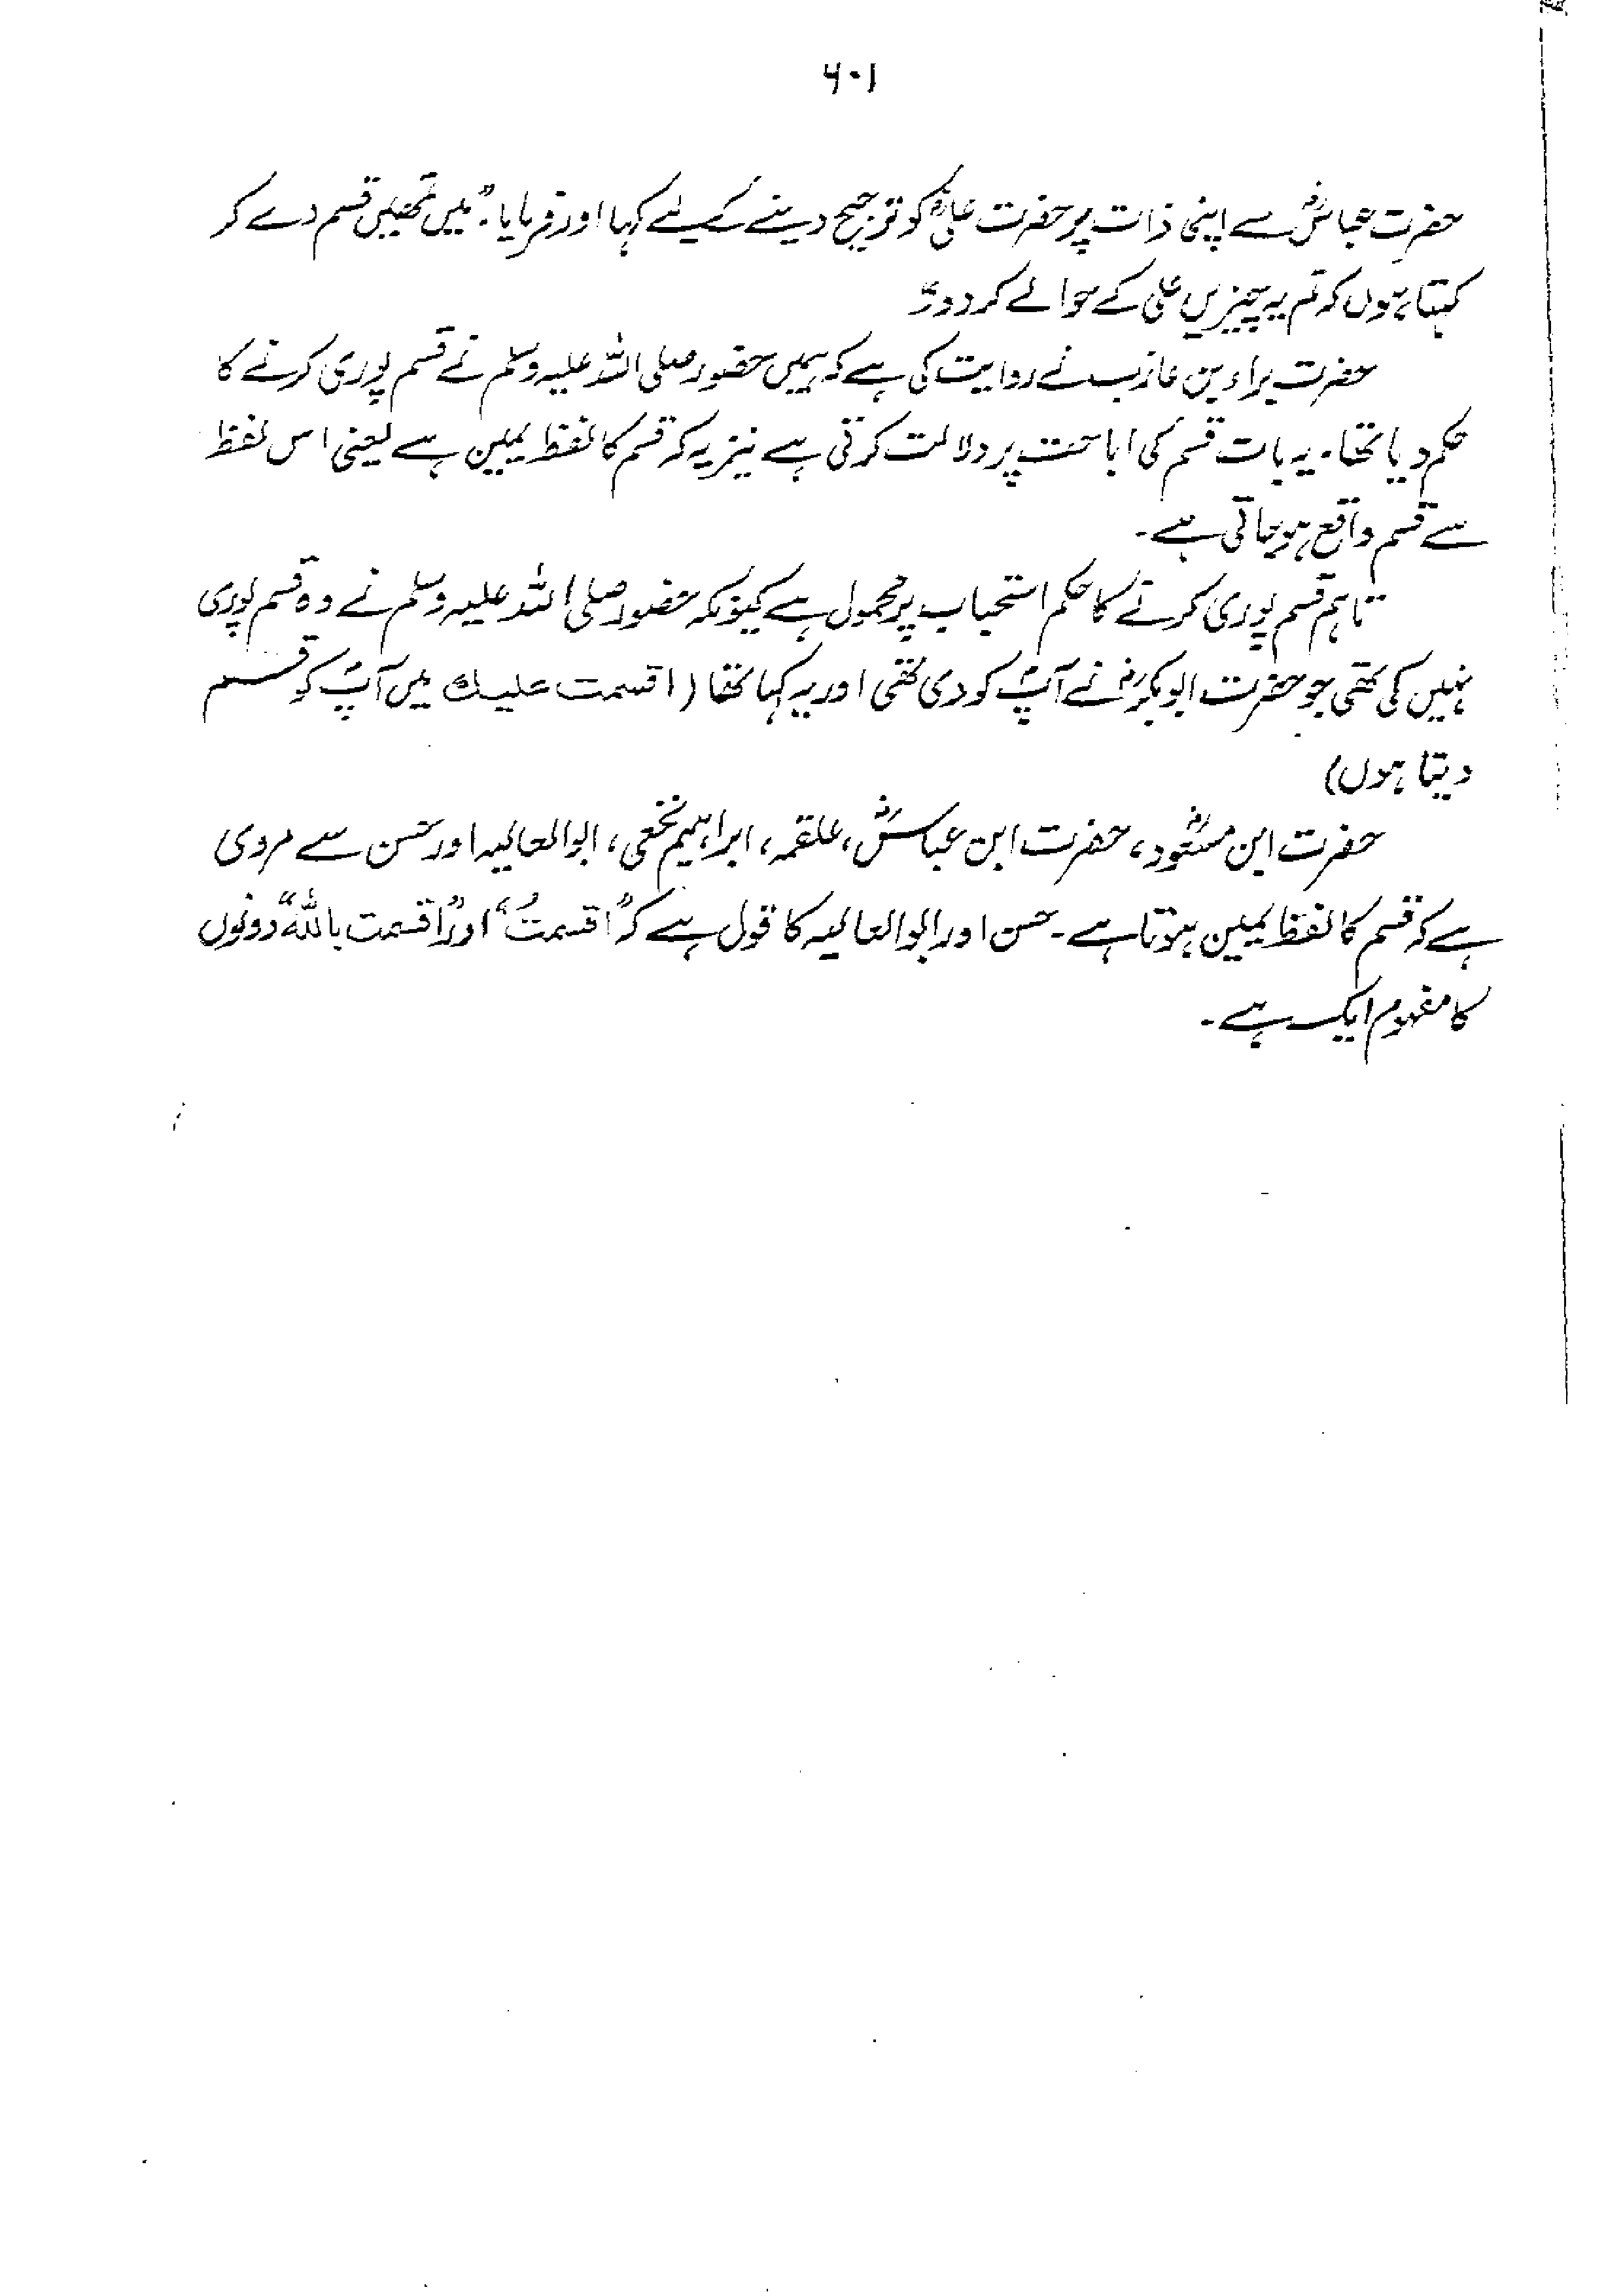 ۶۰۱
حضرت عباسؓ سے اپنی ذات پر حضرت علیؓ کو ترجیح دینے کے لیے کہا اور فرمایا۔ "میں تمھیں قسم دے کر
کہتا ہوں کہ تم یہ چیزیں علی کے حوالے کر دو"
حضرت براء بن عازب نے روایت کی ہے کہ ہمیں حضور صلی اللہ علیہ وسلم نے قسم پوری کرنے کا
حکم دیا تھا۔ یہ بات قسم کی اباحت پر دلالت کرتی ہے نیز یہ کہ قسم کا لفظ یمین ہے یعنی اس لفظ
سے قسم واقع ہو جاتی ہے۔
تاہم قسم پوری کرنے کا حکم استحباب پر محمول ہے کیونکہ حضور صلی اللہ علیہ وسلم نے وہ قسم پوری
نہیں کی تھی جو حضرت ابوبکرؓ نے آپؐ کو دی تھی اور یہ کہا تھا (اقسمت علیک میں آپؐ کو قسم
دیتا ہوں)
حضرت ابن مسعودؓ، حضرت ابن عباسؓ، علقمہ، ابراہیم نخعی، ابوالعالیہ اور حسن سے مروی
ہے کہ قسم کا لفظ یمین ہوتا ہے۔ حسن اور ابوالعالیہ کا قول ہے کہ "اقسمتُ" اور "اقسمت باللہ" دونوں
کا مفہوم ایک ہے۔